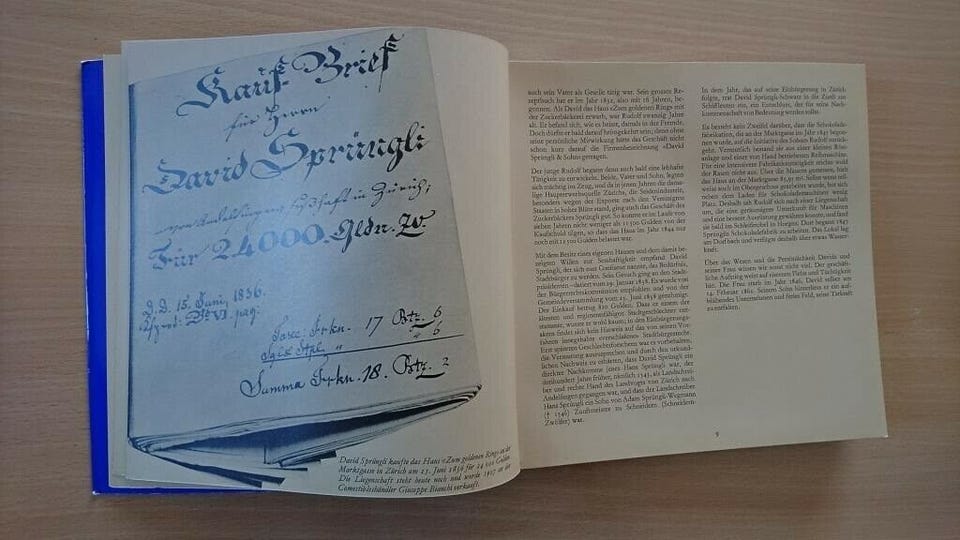 Kauf-Brief
für Herrn
David Sprüngli
von Andelfingen, seßhaft in Zürich;
Für 24000. Gldn. Zü.
D.D. 15. Juni, 1836.
pag.
Frkn. 17 Btz. 6
" 6
Summa Frkn. 18. Btz. 2
David Sprüngli kaufte das Haus «Zum goldenen Ring» an der
Marktgasse in Zürich am 15. Juni 1836 für 24 000 Gulden.
Die Liegenschaft steht heute noch und wurde 1907 an den
Comestibleshändler Giuseppe Bianchi verkauft.
auch sein Vater als Geselle tätig war. Sein grosses Re-
zeptbuch hat er im Jahr 1832, also mit 16 Jahren, be-
gonnen. Als David das Haus «Zum goldenen Ring» mit
der Zuckerbäckerei erwarb, war Rudolf zwanzig Jahre
alt. Er befand sich, wie es heisst, damals in der Fremde.
Doch dürfte er bald darauf heimgekehrt sein; denn ohne
seine persönliche Mitwirkung hätte das Geschäft nicht
schon kurz darauf die Firmenbezeichnung «David
Sprüngli & Sohn» getragen.
Der junge Rudolf begann denn auch bald eine lebhafte
Tätigkeit zu entwickeln. Beide, Vater und Sohn, legten
sich mächtig ins Zeug, und da in jenen Jahren die dama-
lige Haupterwerbsquelle Zürichs, die Seidenindustrie,
besonders wegen der Exporte nach den Vereinigten
Staaten in hoher Blüte stand, ging auch das Geschäft des
Zuckerbäckers Sprüngli gut. So konnte er im Laufe von
sieben Jahren nicht weniger als Gulden von der
Kaufschuld tilgen, so dass das Haus im Jahr 1844 nur
noch mit 12 500 Gulden belastet war.
Mit dem Besitz eines eigenen Hauses und dem damit be-
zeigten Willen zur Sesshaftigkeit empfand David
Sprüngli, der sich nun Confiseur nannte, das Bedürfnis,
Stadtbürger zu werden. Sein Gesuch ging an den Stadt-
präsidenten – datiert vom 19. Januar 1838. Es wurde von
der Bürgerrechtskommission empfohlen und von der
Gemeindeversammlung vom 25. Juni 1838 genehmigt.
Der Einkauf betrug 850 Gulden. Dass er einem der
ältesten und regimentsfähigen Stadtgeschlechter ent-
stammte, wusste er wohl kaum; in den Einbürgerungs-
akten findet sich kein Hinweis auf das von seinen Vor-
fahren innegehabte Stadtbürgerrecht.
Erst späteren Geschlechterforschern war es vorbehalten,
die Vermutung auszusprechen und durch den urkund-
lichen Nachweis zu erhärten, dass David Sprüngli ein
direkter Nachkomme jenes Hans Sprüngli war, der
dreihundert Jahre früher, nämlich 1543, als Landschrei-
ber und rechte Hand des Landvogts von Zürich nach
Andelfingen gegangen war, und dass der Landschreiber
Hans Sprüngli ein Sohn von Adam Sprüngli-Wegmann
Zunftmeister zu Schneidern (Schneidern-
Zwölfer) war.
In dem Jahr, das auf seine Einbürgerung in Zürich
folgte, trat David Sprüngli-Schwarz in die Zunft zur
Schiffleuten ein, ein Entschluss, der für seine Nach-
kommenschaft von Bedeutung werden sollte.
Es besteht kein Zweifel darüber, dass die Schokolade-
fabrikation, die an der Marktgasse im Jahr 1845 begon-
nen wurde, auf die Initiative des Sohnes Rudolf zurück-
geht. Vermutlich bestand sie aus einer kleinen Röst-
anlage und einer von Hand betriebenen Reibmaschine.
Für eine intensivere Fabrikationstätigkeit reichte wohl
der Raum nicht aus. Über die Massen gemessen, hielt
das Haus an der Marktgasse Selbst wenn teil-
weise auch im Obergeschoss gearbeitet wurde, bot sich
neben dem Laden für Schokolademaschinen wenig
Platz. Deshalb sah Rudolf sich nach einer Liegenschaft
um, die eine geräumigere Unterkunft für Maschinen
und eine bessere Ausrüstung gewähren konnte, und fand
sie bald im Schleifetobel in Horgen. Dort begann 1847
Sprünglis Schokoladefabrik zu arbeiten. Das Lokal lag
am Dorfbach und verfügte deshalb über etwas Wasser-
kraft.
Über das Wesen und die Persönlichkeit Davids und
seiner Frau wissen wir sonst nicht viel. Der geschäft-
liche Aufstieg weist auf eisernen Fleiss und Tüchtigkeit
hin. Die Frau starb im Jahr 1846, David selber am
14. Februar 1862. Seinem Sohn hinterliess er ein auf-
blühendes Unternehmen und freies Feld, seine Tatkraft
zu entfalten.
9